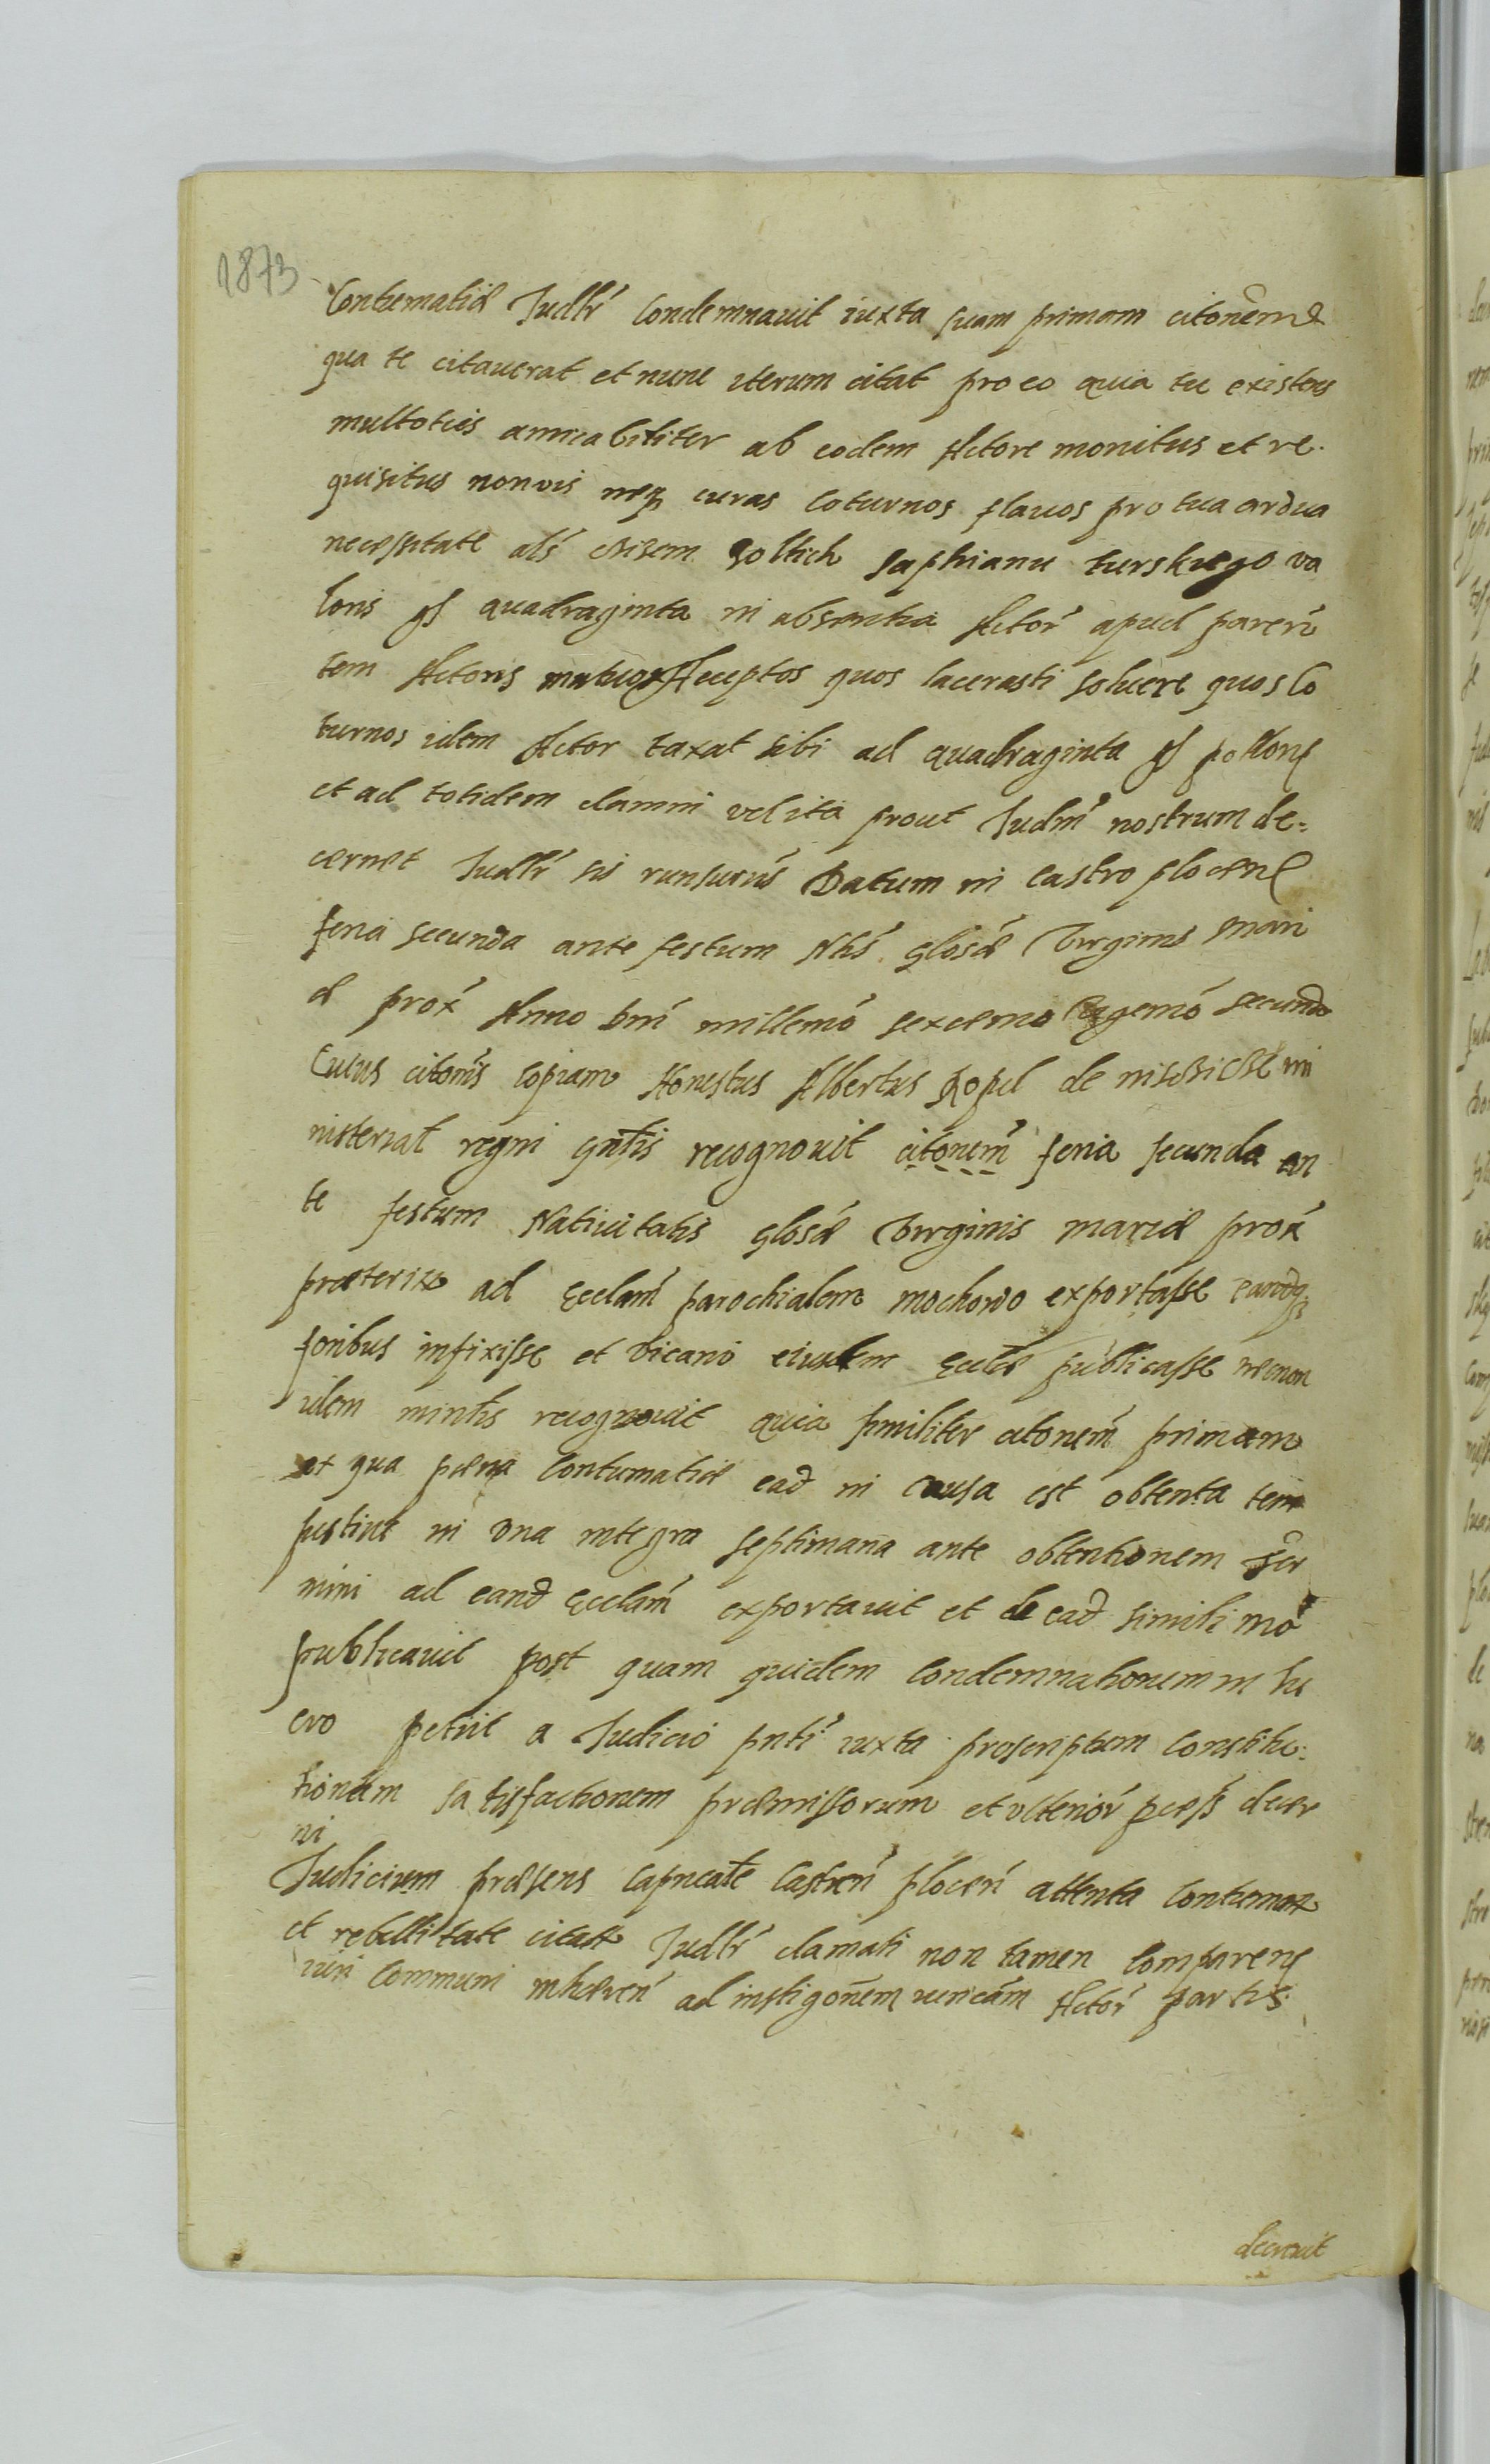 1873
Contumatiæ Judlr condemnauit iuxta suam primam citonem
qua te citauerat et nunc iterum citat pro eo quia tu existens
multoties amicabiliter ab eodem Actore monitus et re.
quisitus non vis neq curas coturnos flauos pro tua ardua
necessitate als zoltich saphianu turskiego va
loris gs quadraginta in absentia Actor apud paren
tem Actoris mutuo Acceptos quos lacerasti soluere quos co
turnos idem Actor taxat sibi ad quadraginta gs
et ad totidem damni vel ita prout Judm nostrum de=
cernet Judlr sis runsurus Datum in castro plocen
feria secunda ante festum Ntis glosæ Virginis Mari
æ prox Anno Dni millemo sexcemo secundo
Cuius citonis copiam Honestus Albertus de mi
nisterial regni gnlis recognouit citonem feria secunda an
te festum Natiuitatis glosæ Virginis mariæ prox
præterit ad Ecclam parochialem mochowo exportasse eandq
foribus infixisse et vicario eiusdem Ecclæ publicasse necnon
idem mintlis recognouit quia similiter citonem primam
ex qua pæna Contumatiæ ead in causa est obtenta tem
pestiue in vna integra septimana ante obtentionem ter
mini ad eand Ecclam exportauit et de ead simili mo
publicauit post quam quidem condemnationem in lu
cro petiit a Judicio pnti iuxta præscriptum Constitu:
tionum satisfactionem præmissorum et vlterior pcess decer
ni
Judicium præsens capneale Castren plocen attenta contumax
et rebellitate citati Judlr clamati non tamen comparen
iuri communi inhæren ad instigonem Actor partis
decreuit